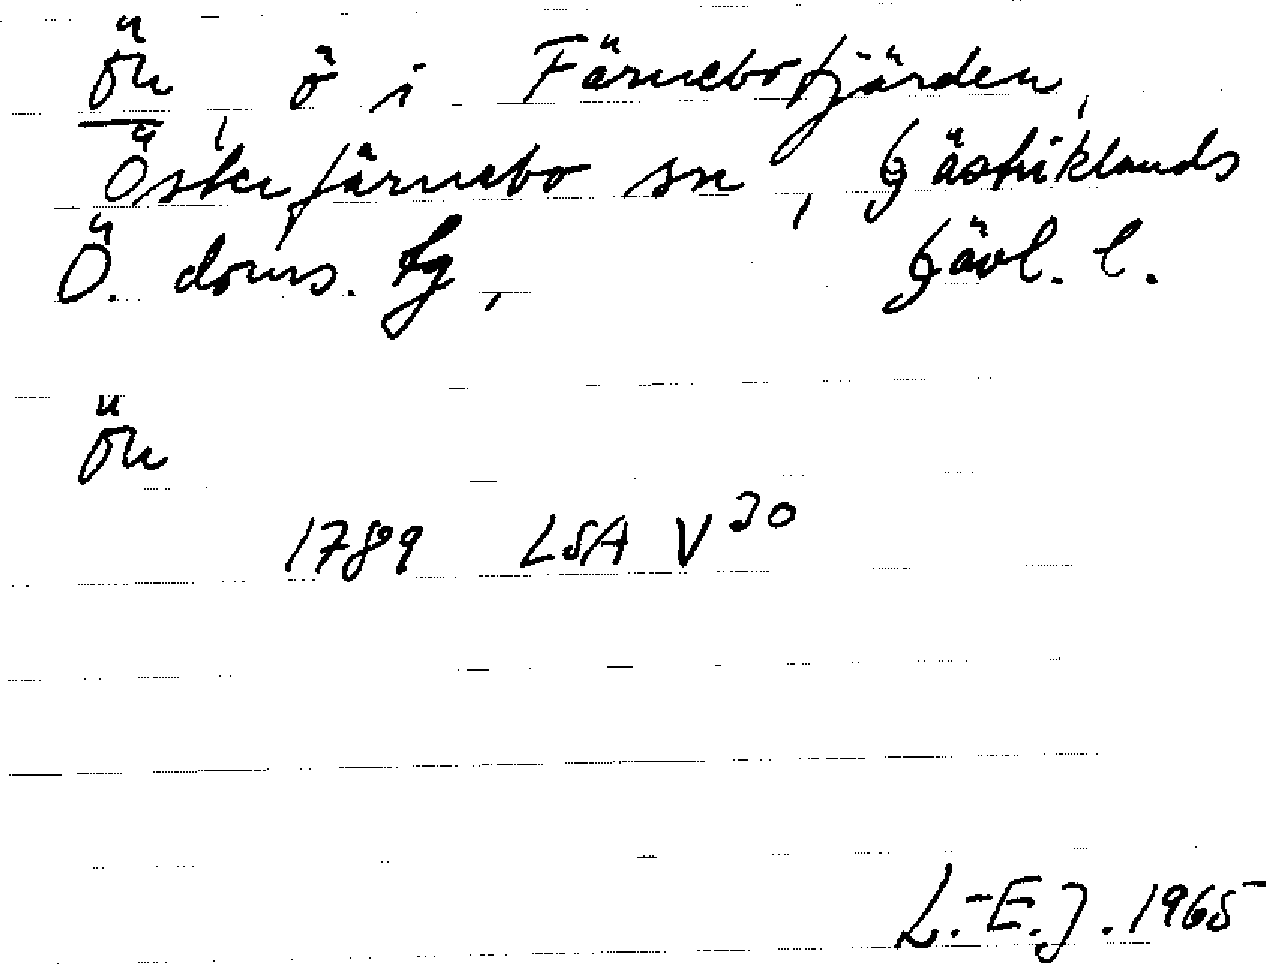 Ön, ö i Färnebofjärden,
Österfärnebo sn, Gästriklands
Ö. doms. fg, Gävl. l.
Ön
1789 LSA V30
L.-E.J. 1965